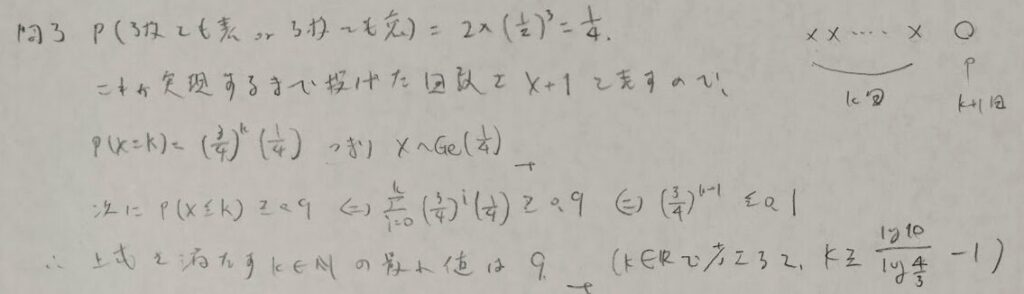 問3 P(3枚とも表 or 3枚とも裏) = 2×(1/2)^3 = 1/4.
×× ‥‥ × ○
k回
P
k+1回
これが実現するまで投げた回数を X+1 と表すので、
P(X=k) = (3/4)^k (1/4) つまり X~Ge(1/4)
次に P(X≤k) ≥ 0.9 ⇔ Σ_{i=0}^{k} (3/4)^i (1/4) ≥ 0.9 ⇔ (3/4)^{k+1} ≤ 0.1
∴ 上式を満たす k∈ℕ の最小値は 9. (k∈ℝで考えると、k ≥ log10/log 4/3 - 1)